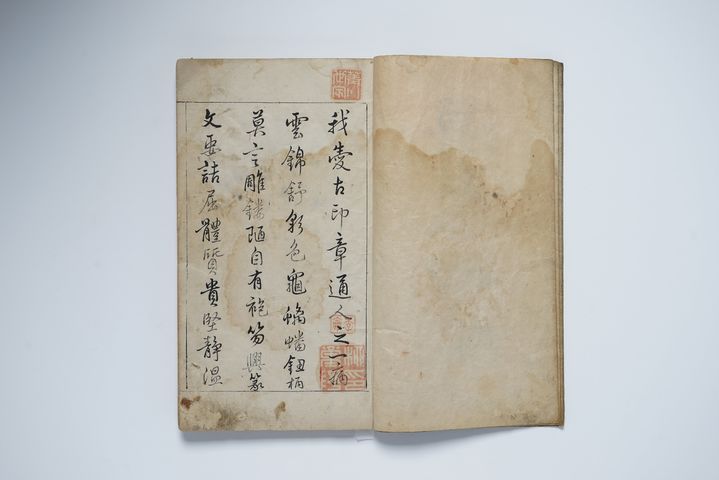 我愛古印章通人之一病
雲錦舒彩色龜螭蟠鈕柄
莫言雕鏤陋自有袍笏興篆
文要詰屈體質貴堅静溫